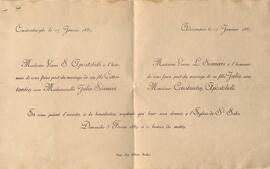 Constantinople le 15 Janvier 1889
Madame Veuve S. Apostolidi a l'honneur
de vous faire part du mariage de son fils Constantin
avec Mademoiselle Julie Sismani.
Alexandrie le 15 Janvier 1889
Madame Veuve L. Sismani a l'honneur
de vous faire part du mariage de sa fille Julie avec
Monsieur Constantin Apostolidi.
Et vous prient d'assister à la bénédiction nuptiale qui leur sera donnée à l'Eglise de St. Saba
Dimanche 3 Février 1889 à 11 heures du matin.